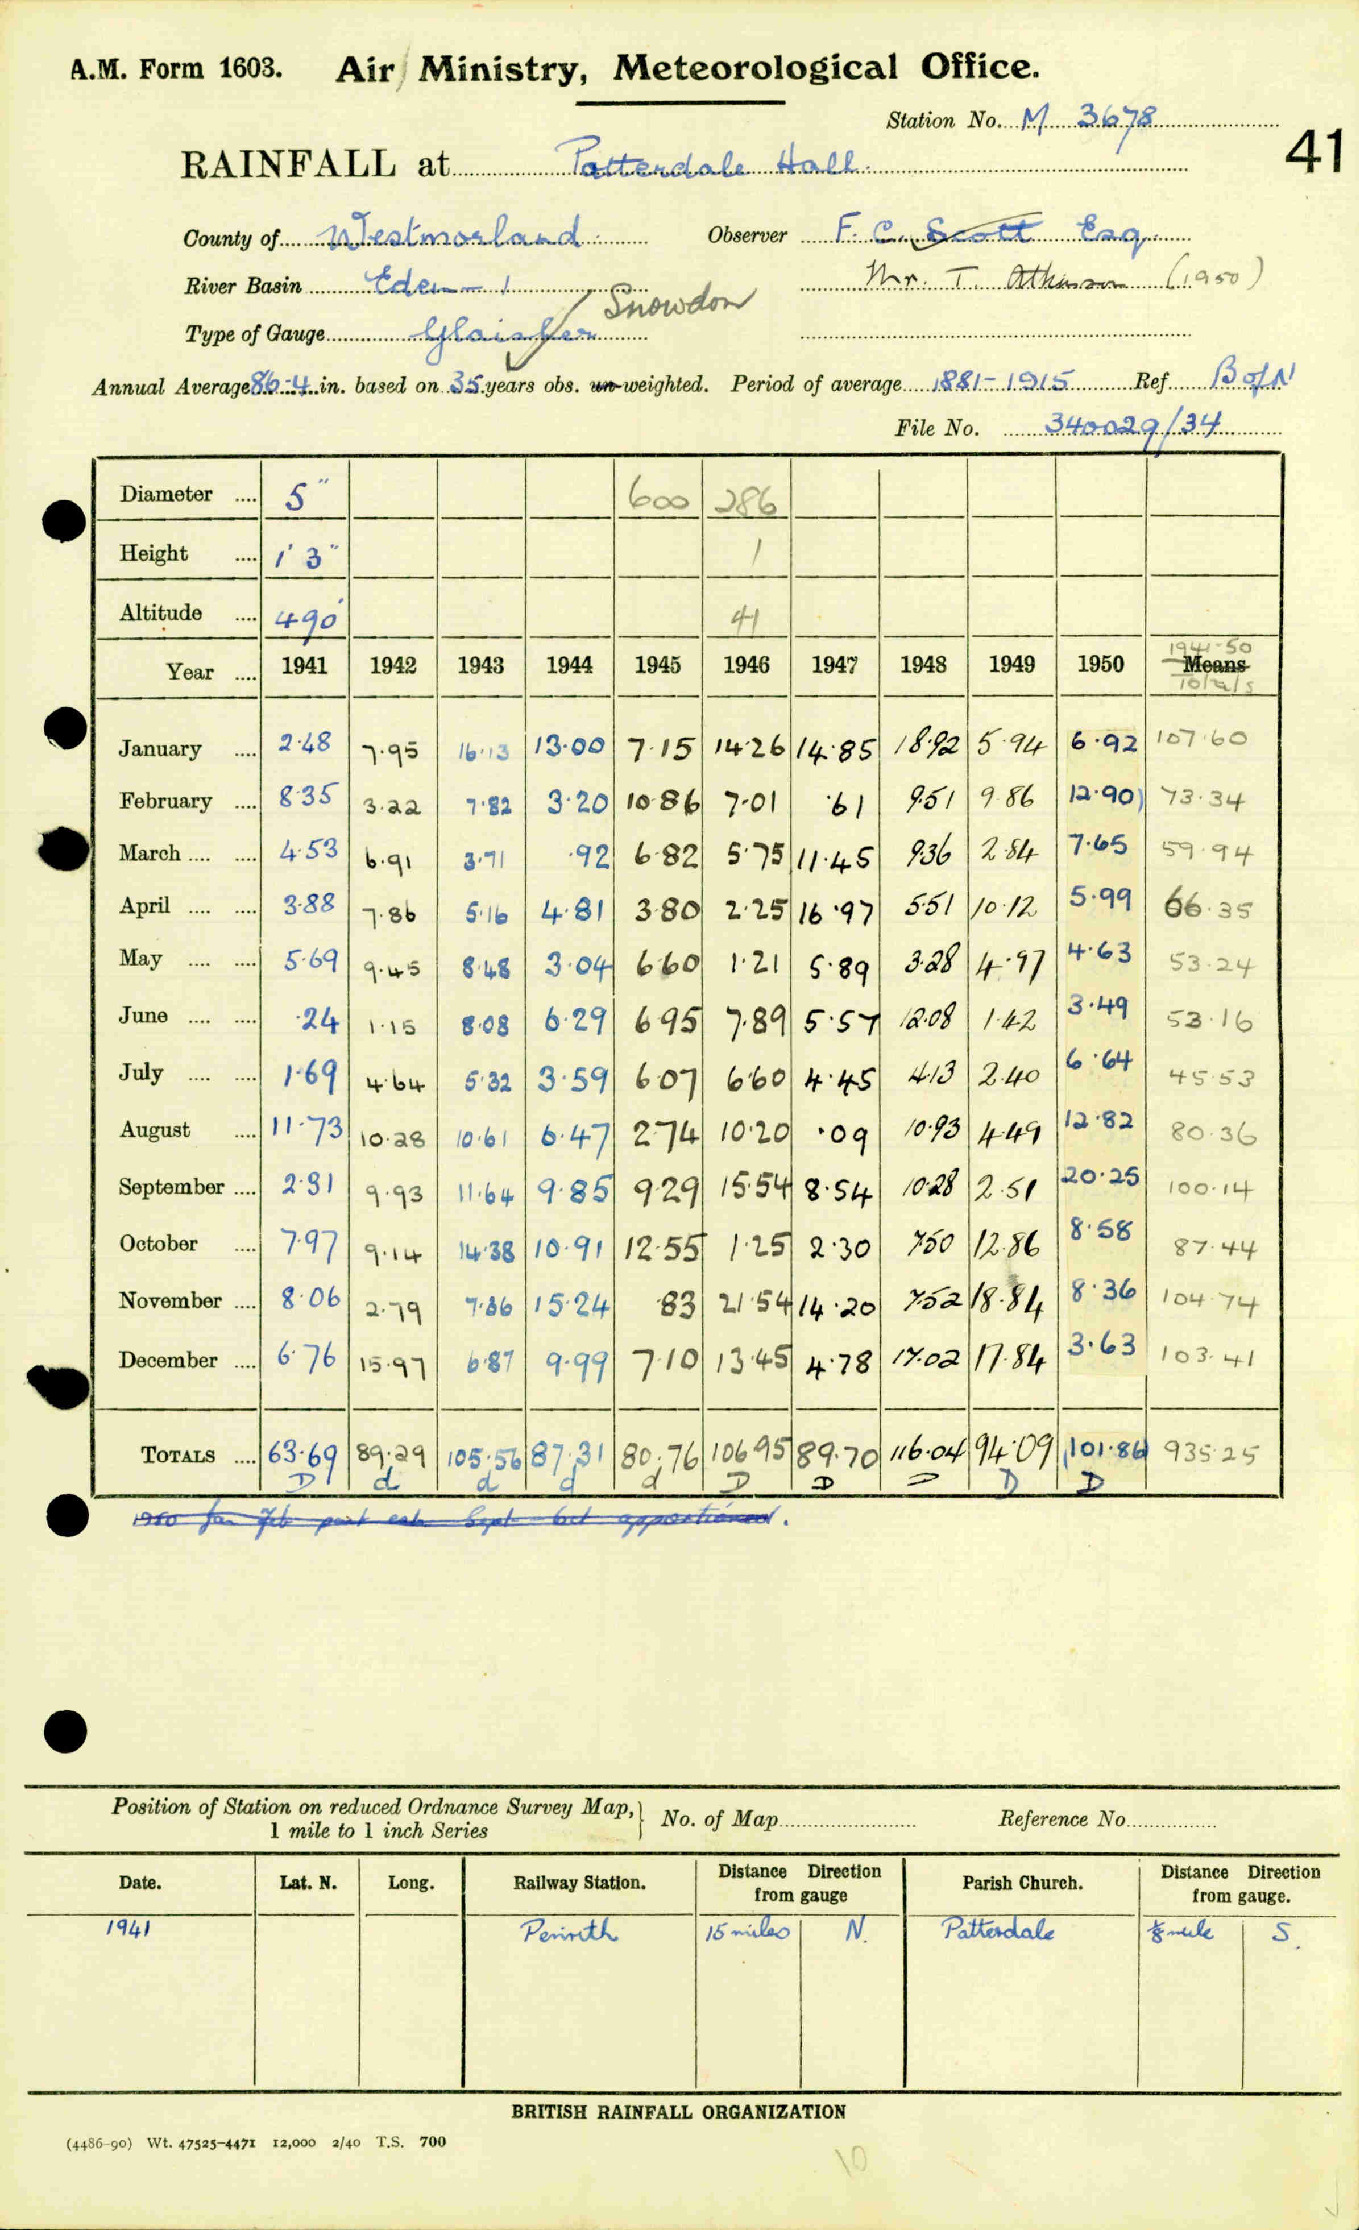 A.M. Form 1603. Air Ministry, Meteorological Office.
Station No. M 3678
41
RAINFALL at Patterdale Hall.
County of Westmorland Observer F. C. Scott Esq.
River Basin Eden – 1 Mr. T. Atkinson (1950)
Snowdon
Type of Gauge Glaisher
Annual Average 86.4 in. based on 35 years obs. un-weighted. Period of average 1881-1915 Ref B of N
File No. 340029/34
Diameter .... 5" 600 286
Height .... 1' 3" 1
Altitude .... 490' 41
Year .... 1941 1942 1943 1944 1945 1946 1947 1948 1949 1950 1941-50 Means Totals
January .... 2.48 7.95 16.13 13.00 7.15 14.26 14.85 18.92 5.94 6.92 107.60
February .... 8.35 3.22 7.82 3.20 10.86 7.01 .61 9.51 9.86 12.90) 73.34
March .... .... 4.53 6.91 3.71 .92 6.82 5.75 11.45 9.36 2.84 7.65 59.94
April .... .... 3.88 7.86 5.16 4.81 3.80 2.25 16.97 5.51 10.12 5.99 66.35
May .... .... 5.69 9.45 8.48 3.04 6.60 1.21 5.89 3.28 4.97 4.63 53.24
June .... .... .24 1.15 8.08 6.29 6.95 7.89 5.57 12.08 1.42 3.49 53.16
July .... .... 1.69 4.64 5.32 3.59 6.07 6.60 4.45 4.13 2.40 6.64 45.53
August .... 11.73 10.28 10.61 6.47 2.74 10.20 .09 10.93 4.49 12.82 80.36
September .... 2.31 9.93 11.64 9.85 9.29 15.54 8.54 10.28 2.51 20.25 100.14
October .... 7.97 9.14 14.38 10.91 12.55 1.25 2.30 7.50 12.86 8.58 87.44
November .... 8.06 2.79 7.36 15.24 .83 21.54 14.20 7.52 18.84 8.36 104.74
December .... 6.76 15.97 6.87 9.99 7.10 13.45 4.78 17.02 17.84 3.63 103.41
TOTALS .... 63.69 89.29 105.56 87.31 80.76 106.95 89.70 116.04 94.09 101.86 935.25
D d d d d D D D D D
1950 Jan Feb part est. Sept Oct apportioned.
Position of Station on reduced Ordnance Survey Map, 1 mile to 1 inch Series } No. of Map Reference No.
Date. Lat. N. Long. Railway Station. Distance Direction from gauge Parish Church. Distance Direction from gauge.
1941 Penrith 15 miles N. Patterdale ⅛ mile S.
BRITISH RAINFALL ORGANIZATION
(4486-90) Wt. 47525-4471 12,000 2/40 T.S. 700
10